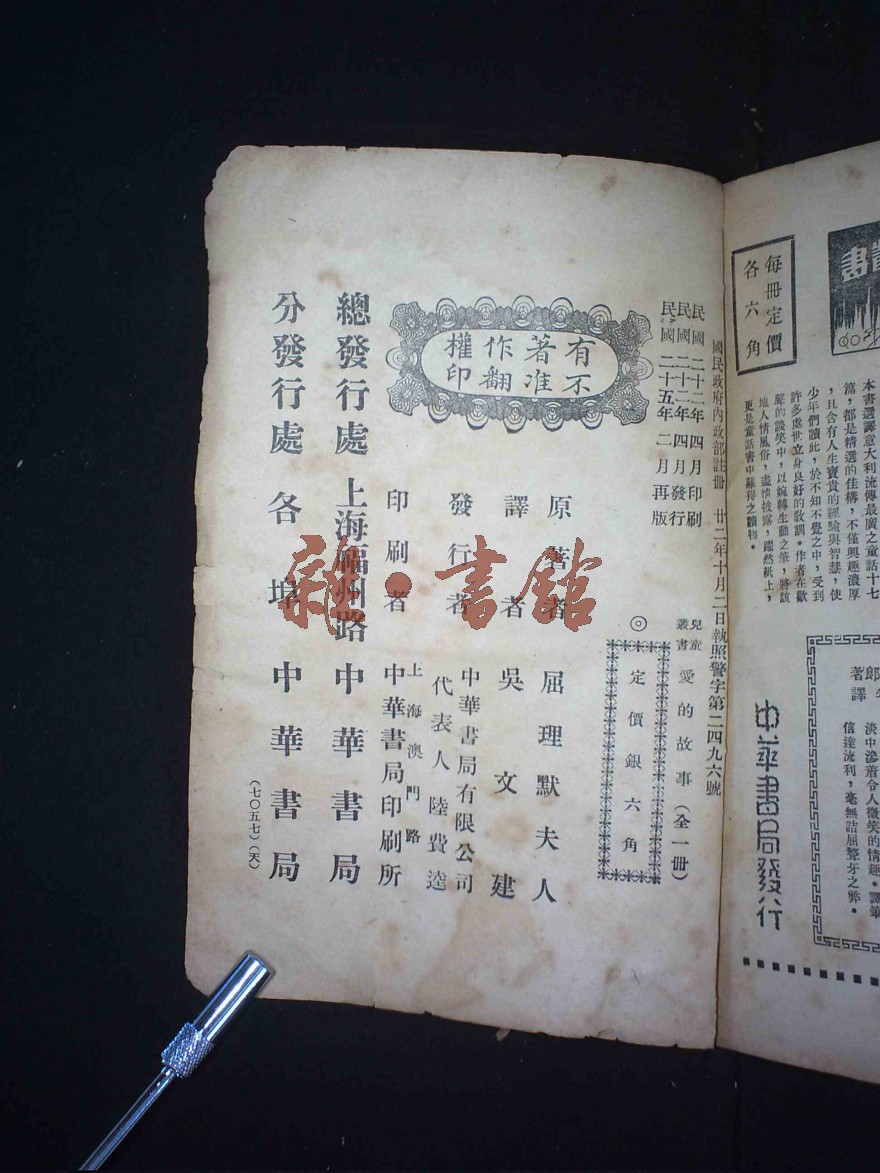 每冊定價
各六角
本書選譯意大利流傳最廣之童話十七
篇，都是精選的佳構，不僅興趣濃厚
，且含有人生寶貴的經驗與智慧，使
少年們讀此，於不知不覺之中，受到
許多處世立身良好的教訓。作者在歡
地人情風俗，盡情披露，躍然紙上，
更是童話書中難得之讀物。
著譯
淡中滲着令人微笑的情趣。譯筆
信達流利，毫無詰屈聱牙之弊。
中華書局發行
國民政府內政部註冊 廿二年十月二日執照警字第二四九六號
民國二十二年四月印刷
民國二十二年四月發行
民國二十五年二月再版
兒童叢書 愛的故事（全一冊）
◎定價銀六角
有著作權
不准翻印
原著者 屈理默夫人
譯者 吳文建
發行者 中華書局有限公司
代表人 陸費逵
印刷者 上海澳門路
中華書局印刷所
總發行處 上海福州路 中華書局
分發行處 各埠 中華書局
（七〇五七）（天）
雜·書館